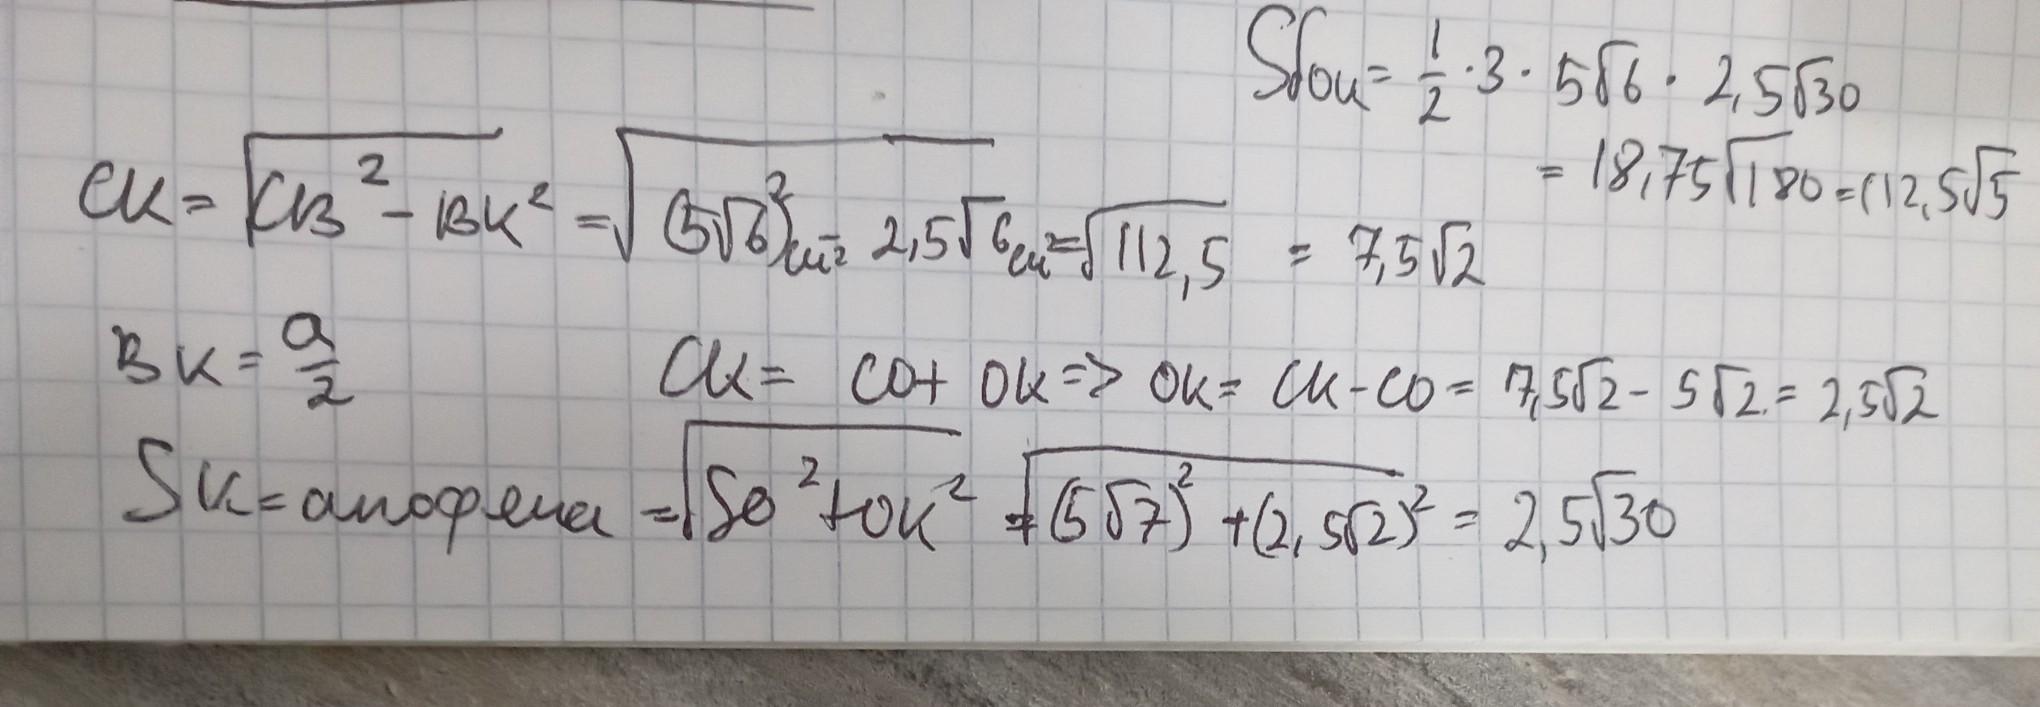 Sбок = 1/2 · 3 · 5√6 · 2,5√30
= 18,75√180 = 112,5√5
CK = √(CB² - BK²) = √((5√6)²см² - 2,5√6см²) = √112,5 = 7,5√2
BK = a/2
CK = CO + OK => OK = CK - CO = 7,5√2 - 5√2 = 2,5√2
SK = апофема = √(SO² + OK²) = √((5√7)² + (2,5√2)²) = 2,5√30